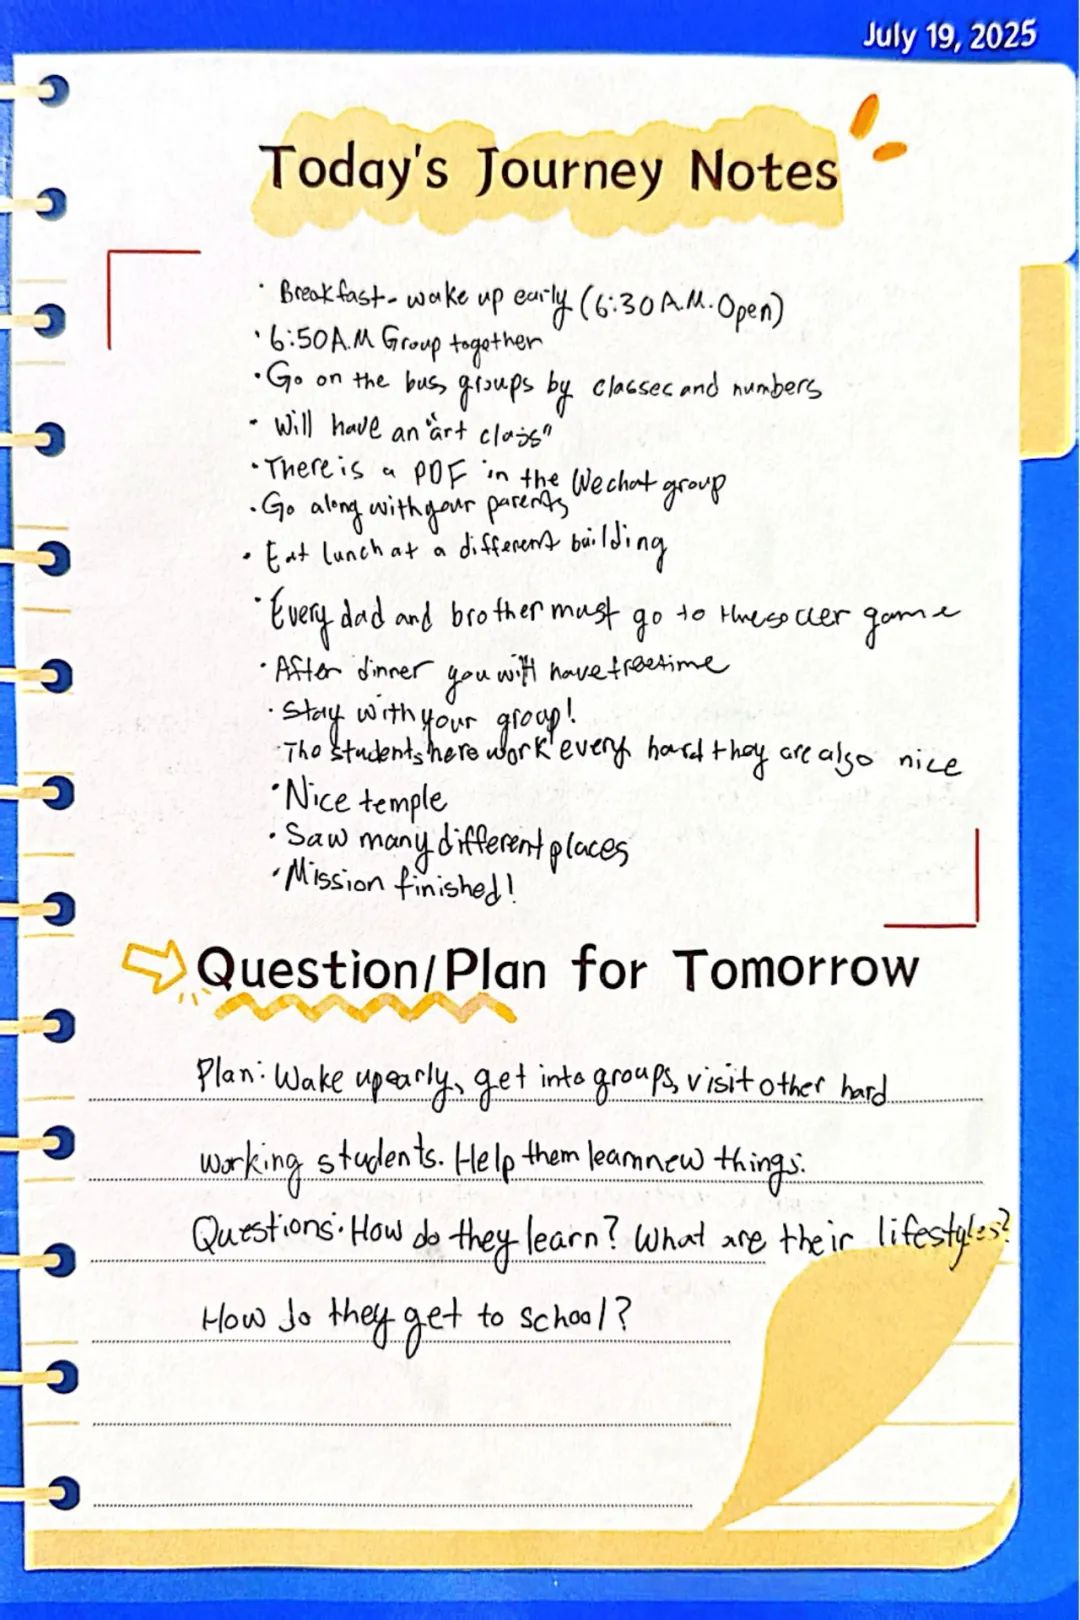 July 19, 2025
Today's Journey Notes
· Breakfast - wake up early (6:30 A.M. Open)
· 6:50 A.M Group together
· Go on the bus, groups by classes and numbers
· Will have an "art class"
· There is a PDF in the Wechat group
· Go along with your parents
· Eat lunch at a different building
· Every dad and brother must go to the soccer game
· After dinner you will have freetime
· Stay with your group!
· The students here work every hard they are also nice
· Nice temple
· Saw many different places
· Mission finished!
Question/Plan for Tomorrow
Plan: Wake up early, get into groups, visit other hard
working students. Help them learn new things.
Questions: How do they learn? What are their lifestyles?
How do they get to school?